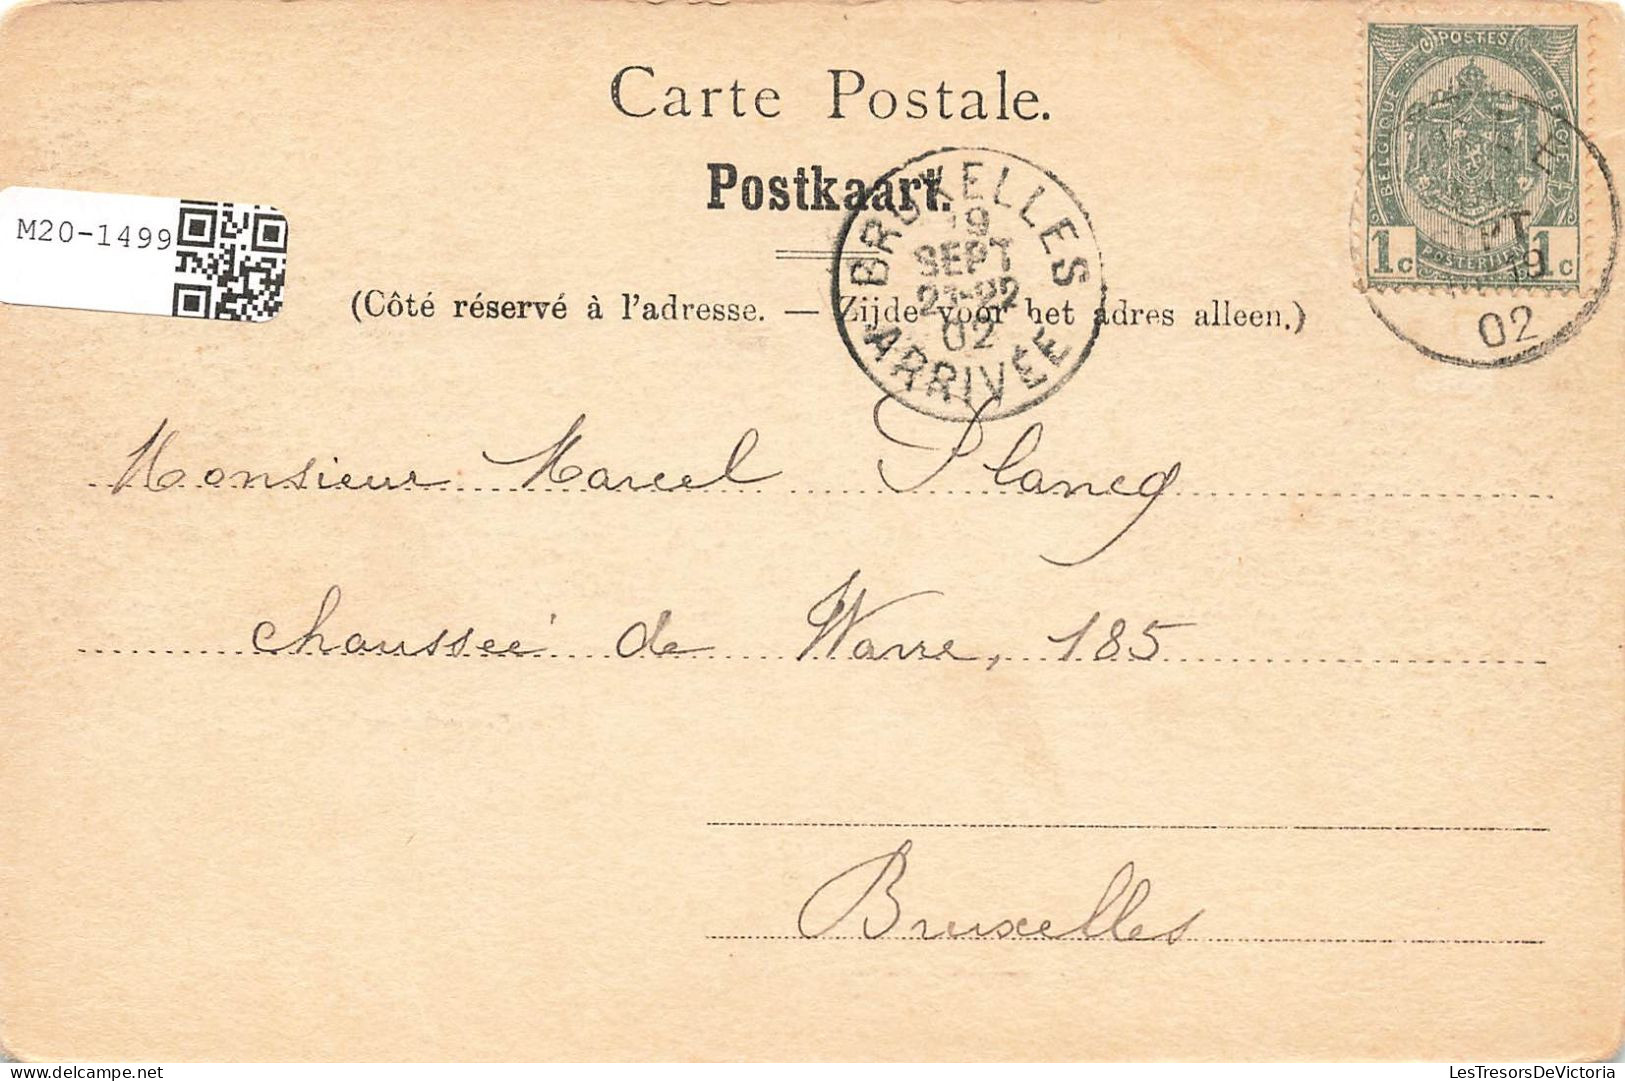 Carte Postale.
Postkaart.
(Côté réservé à l'adresse. — Zijde voor het adres alleen.)
M20-1499
POSTES
BELGIQUE
BELGIE
POSTERIJEN
1c 1c
BRUXELLES
19
SEPT
21-22
02
ARRIVÉE
PT
19
02
Monsieur Marcel Plancq
chaussée de Wavre, 185
Bruxelles
LesTresorsDeVictoria
delcampe.net